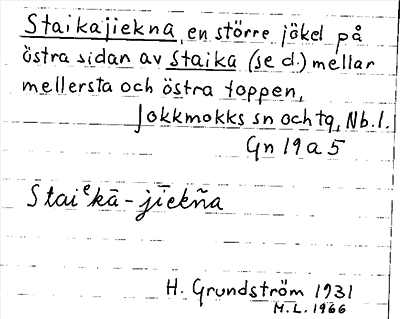 Staikajiekna, en större jökel på
östra sidan av Staika (se d.) mellan
mellersta och östra toppen,
Jokkmokks sn och tg, Nb.l.
Gn 19 a 5
Staiᵉkā-jiekn̄a
H. Grundström 1931
M.L. 1966